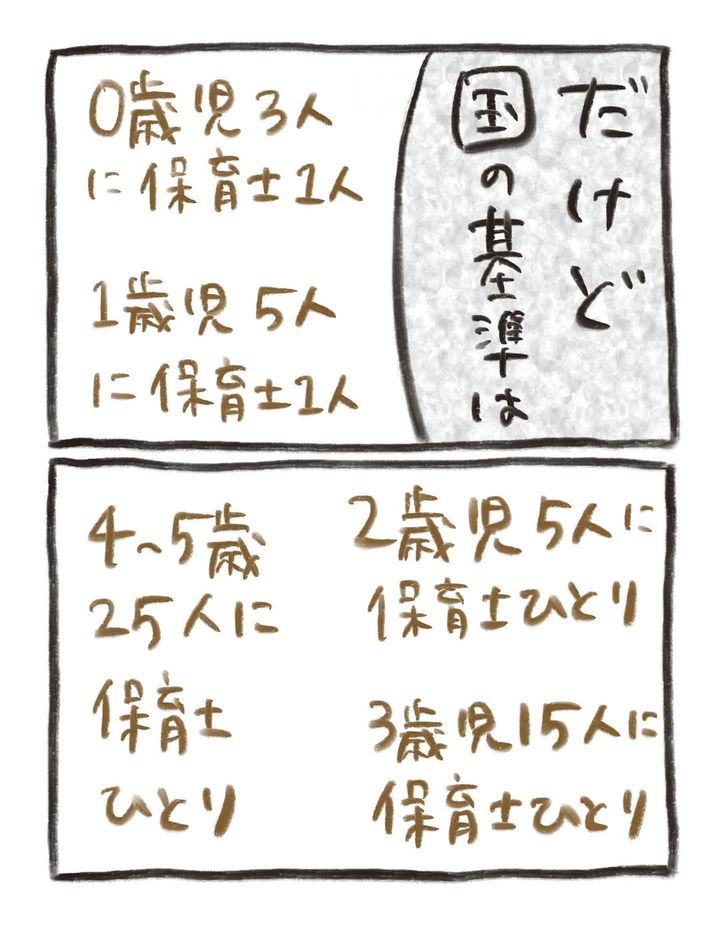 だけど
国の基準は
0歳児3人
に保育士1人
1歳児5人
に保育士1人
2歳児5人に
保育士ひとり
3歳児15人に
保育士ひとり
4~5歳
25人に
保育士
ひとり